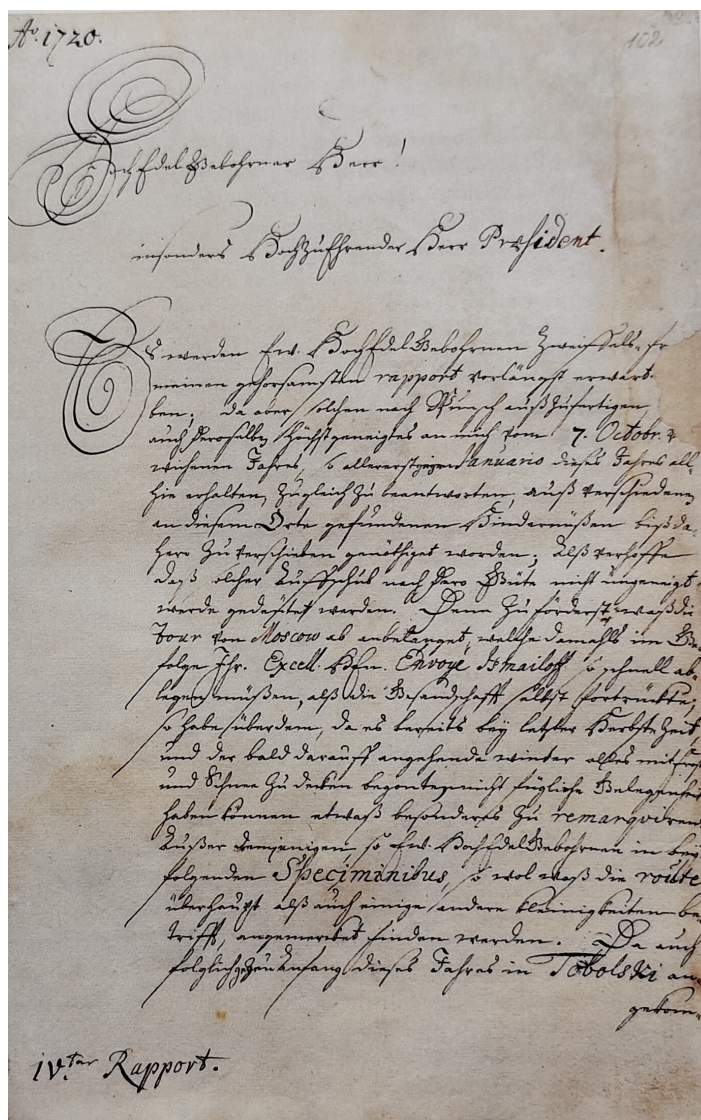 Aō. 1720.
102
HochEdelGebohrner Herr!
insonders HochZuEhrender Herr Præsident.
Es werden Ew. HochEdelGebohrnen Zweiffels-fr
meinen gehorsamsten rapport vorlängst erwart
ben; da aber solchen nach Wunsch außzufertigen,
auch deroselben höchstgeneigtes an mich vom 7. Octobr.
wichenen Jahres, so allererst Januario dieses Jahres all-
hie erhalten, zugleich zu beantworten, auß verschiedenen
an diesem Orte gefundenen Hindernüßen biß da-
hero zu verschieben genöthiget worden; Alß verhoffe
daß solcher Auffschub nach dero Güte nicht ungeneigt
werde gedeutet werden. Denn zu förderst waß die
tour von Moscow ab anbelanget, welche damahls im Ge-
folge Ihr. Excell. Hfn. Envoyé Ismailoff so schnell ab-
legen müßen, alß die Gesandschafft selbst fortrückte,
so habe überdem, da es bereits bey letzter Herbste Zeit
und der bald darauff angehende winter alles mit
und Schnee zu decken begonte, nicht fügliche Gelegenheit
haben können etwaß besonders zu remarqviren
Außer demjenigen so Ew. HochEdelGebohrnen in bey
folgenden Speciminibus, so wol waß die route
überhaupt alß auch einige andere kleinigkeiten be-
trifft, angemercket finden werden. Da auch
folglich zu Anfang dieses Jahres in Tobolski an-
gekom-
IVter Rapport.